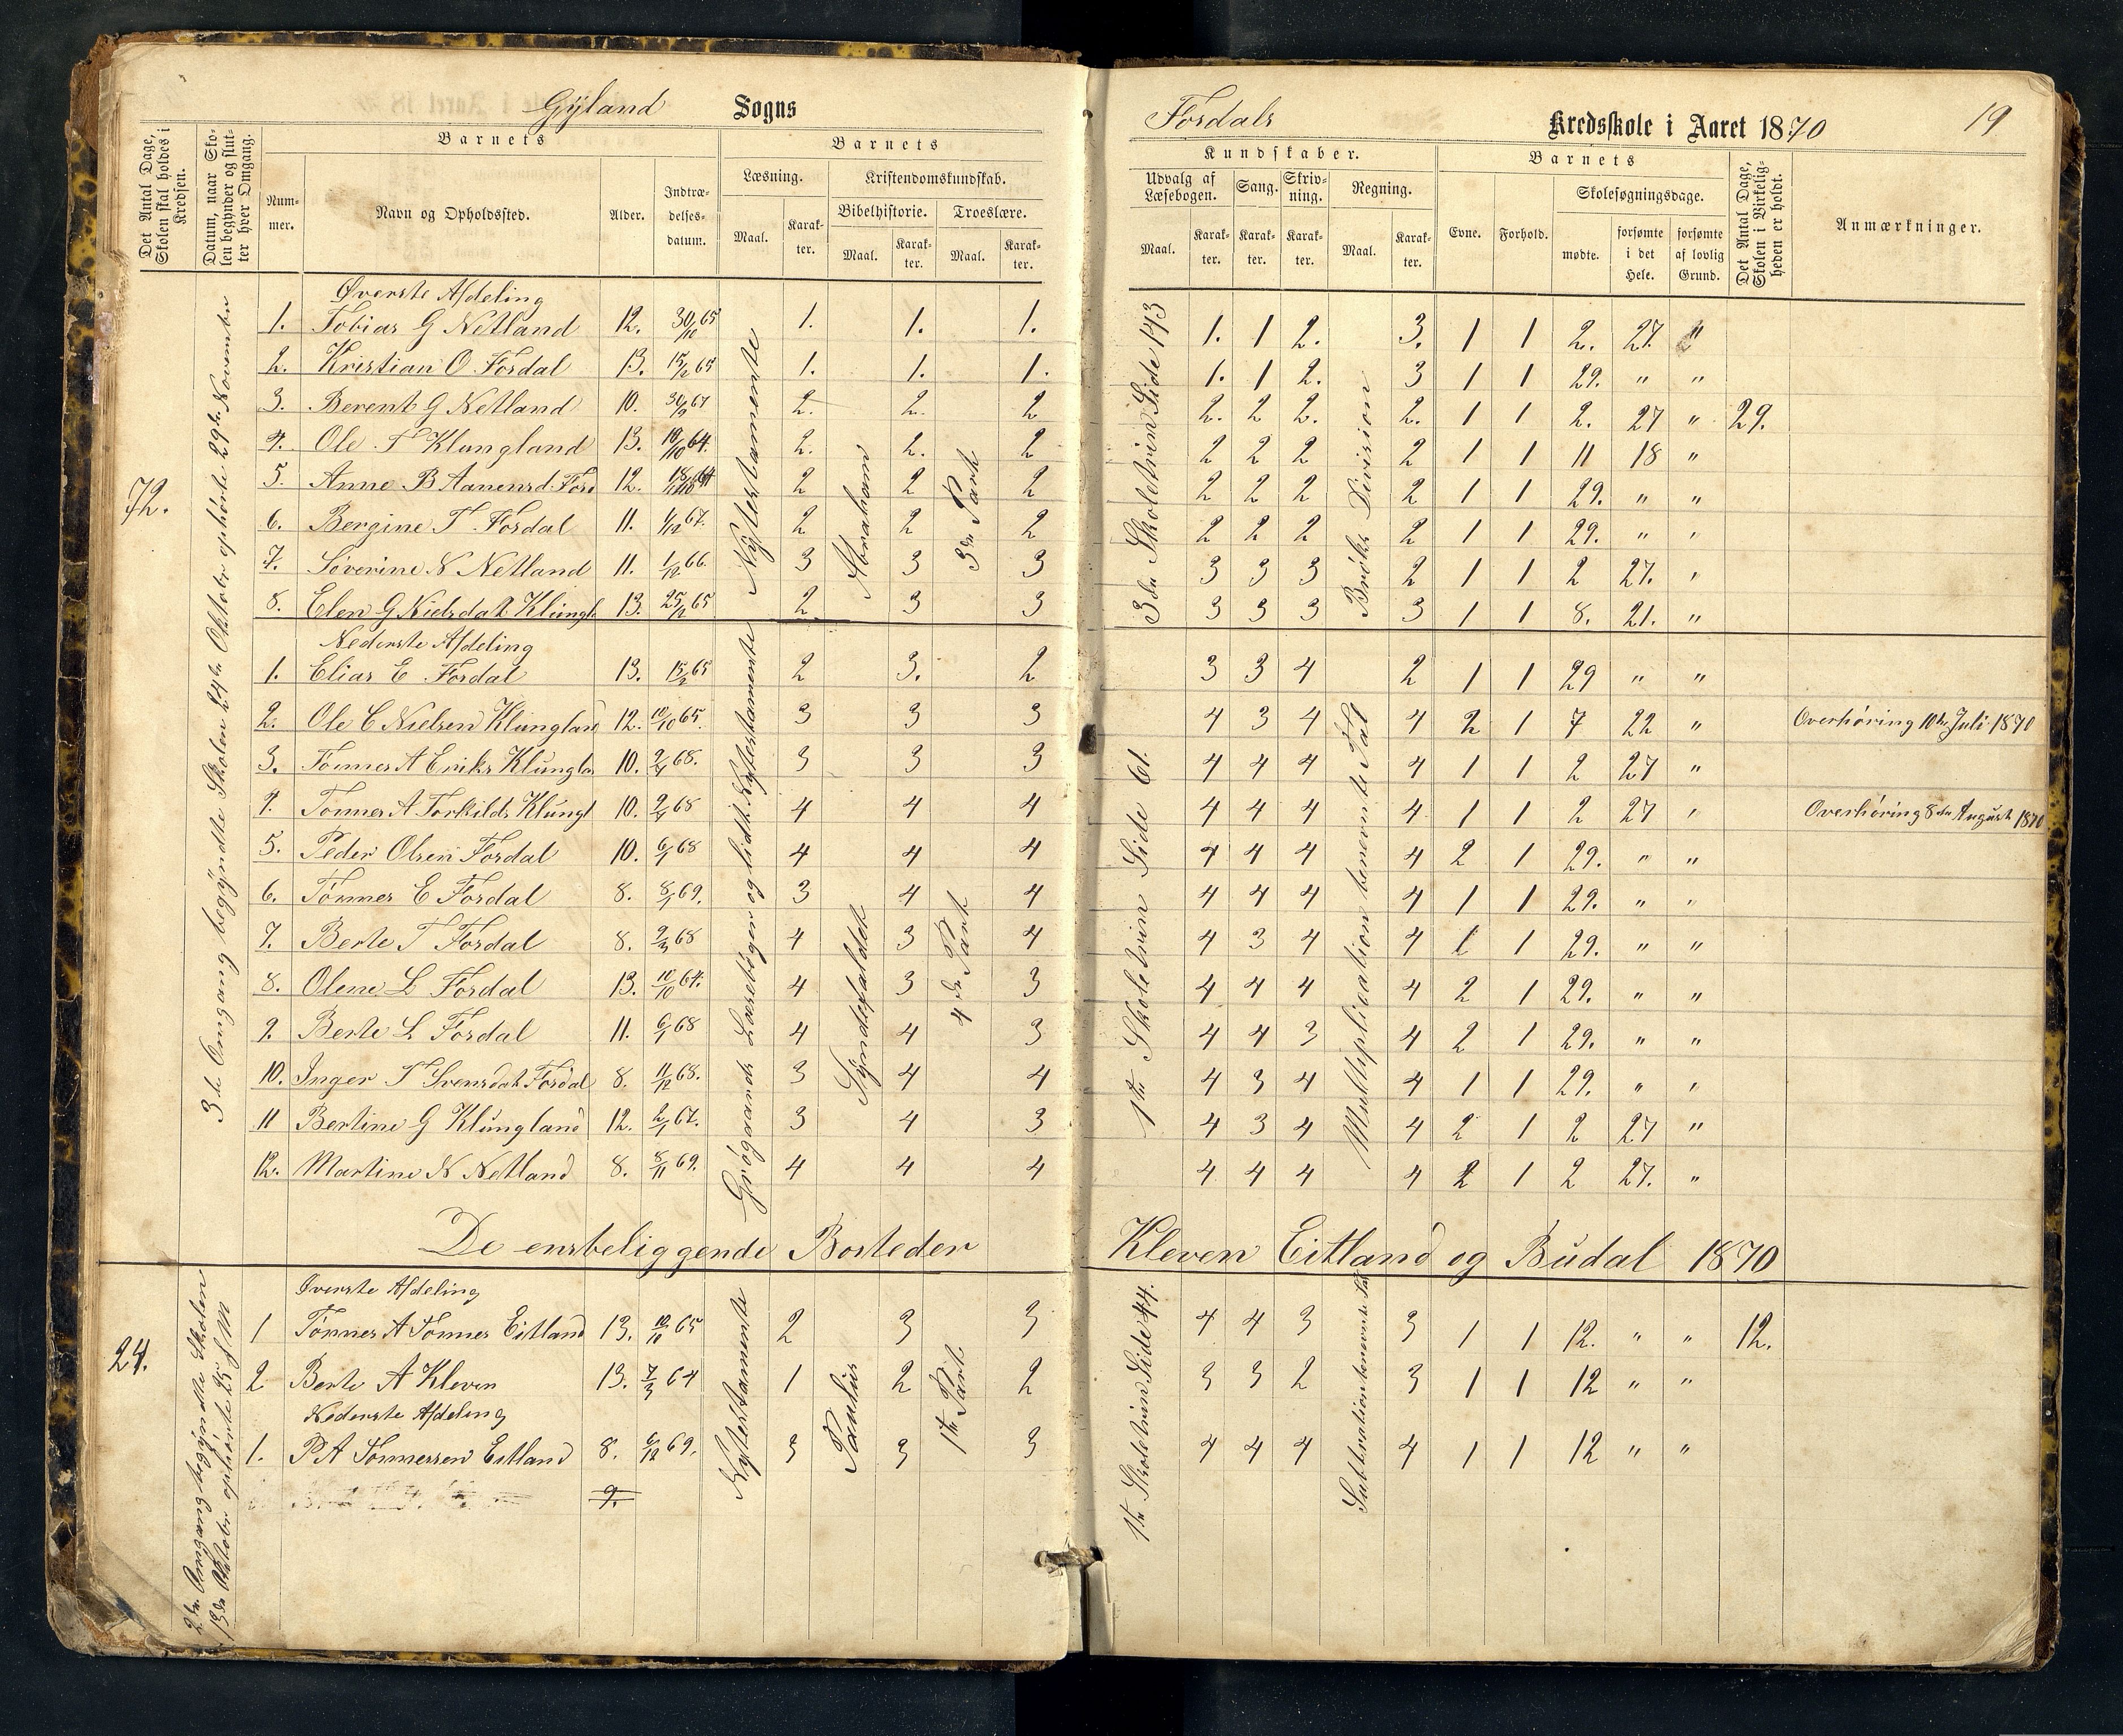 Gyland Sogns
Det Antal Dage, Skolen skal holdes i Kredsen.
Datum, naar Skolen begynder og slutter hver Omgang.
Barnets
Barnets
Nummer.
Navn og Opholdssted.
Alder.
Indtrædelsesdatum.
Læsning.
Kristendomskundskab.
Bibelhistorie.
Troeslære.
Maal.
Karakter.
Maal.
Karakter.
Maal.
Karakter.
72.
3de Omgang begyndte Skolen 24de Oktober ophørte 29de November
Nytestamente
Abraham
3de Part
Øverste Afdeling
1. Tobias G Netland 12. 30/10 65 1. 1. 1.
2. Kristian O Fordal 13. 15/2 65 1. 1. 1.
3. Berent G Netland 10. 30/9 67 2. 2. 2
4. Ole T Klungland 13. 10/10 64. 2. 2. 2
5. Anne B Aanensd. Ford 12. 2 2 2
6. Bergine T. Fordal 11. 1/12 67. 2 2 2
7. Severine N Netland 11. 1/12 66. 3 3 3
8. Elen G Nielsdatt Klungl 13. 25/12 65 2 3 3
Grøgaards Læsebøger og lidt Nytestamente
Syndefaldet
4de Part
Nederste Afdeling
1. Elias E Fordal 13. 15/2 65 2 3. 2
2. Ole C Nielsen Klungland 12. 10/10 65. 3 3 3
3. Tønnes A Eriks Klungla 10. 2/4 68. 3 3 3
4. Tønnes A Torkilds Klungl 10. 2/4 68 4 4 4
5. Peder Olsen Fordal 10. 6/1 68 4 4 4
6. Tønnes E Fordal 8. 8/1 69. 3 4 4
7. Berte T Fordal 8. 2/3 68 4 3 4
8. Olene L Fordal 13. 10/10 64. 4 3 3
9. Berte L Fordal 11. 6/1 68 4 4 3
10. Inger T Svensdat Fordal 8. 11/12 68. 3 4 4
11 Bertine G Klungland 12. 2/1 67. 3 4 3
12. Martine N Netland 8. 8/11 69. 4 4 4
De ensbeliggende Bosteder
24.
2den Omgang begyndte Skolen
13de Oktober ophørte 25 s M
Nytestamente
Paulus
1ste Part
Øverste Afdeling
1 Tønnes A Tønnes Eitland 13. 10/10 65 2 3 3
2 Berte A Kleven 13. 7/3 64 1 2 2
Nederste Afdeling
1. P A Tønnessen Eitland 8. 6/12 69. 3 3 3
9.
Fordals Kredsskole i Aaret 1870 19
Kundskaber.
Barnets
Udvalg af Læsebogen.
Sang.
Skrivning.
Regning.
Evne.
Forhold.
Skolesøgningsdage.
Det Antal Dage, Skolen i Virkeligheden er holdt.
Anmærkninger.
Maal.
Karakter.
Karakter.
Karakter.
Maal.
Karakter.
mødte.
forsømte i det Hele.
forsømte af lovlig Grund.
3de Skoletrin Side 143
Brøks Division
1. 1 2. 3. 1 1 2. 27. "
1. 1 2. 3 1 1 29. " "
2. 2 2. 2. 1 1 2. 27 " 29.
2 2 2 2 1 1 11 18 "
2 2 2 2 1 1 29. " "
2 2 2 2 1 1 29. " "
3 3 3 2 1 1 2 27. "
3 3 3 3 1 1 8. 21. "
1ste Skoletrin Side 61.
Multiplication benevnte Tal
3 3 4 2 1 1 29 " "
4 3 4 4 2 1 7 22 " Overhøring 10de Juli 1870
4 4 4 4 1 1 2 27 "
4 4 4 4 1 1 2 27 " Overhøring 8de August 1870
4 4 4 4 2 1 29. " "
4 4 4 4 1 1 29. " "
4 3 4 4 1 1 29. " "
4 4 4 4 2 1 29. " "
4 4 3 4 2 1 29. " "
4 3 4 4 1 1 29. " "
4 3 4 4 2 1 2 27 "
4 4 4 4 2 1 2 27. "
Kleven Eitland og Budal 1870
1ste Skoletrin Side 44.
Subtration benevnte Tal
4 4 3 3 1 1 12. " " 12.
3 3 2 3 1 1 12 " "
4 4 4 4 1 1 12 " "